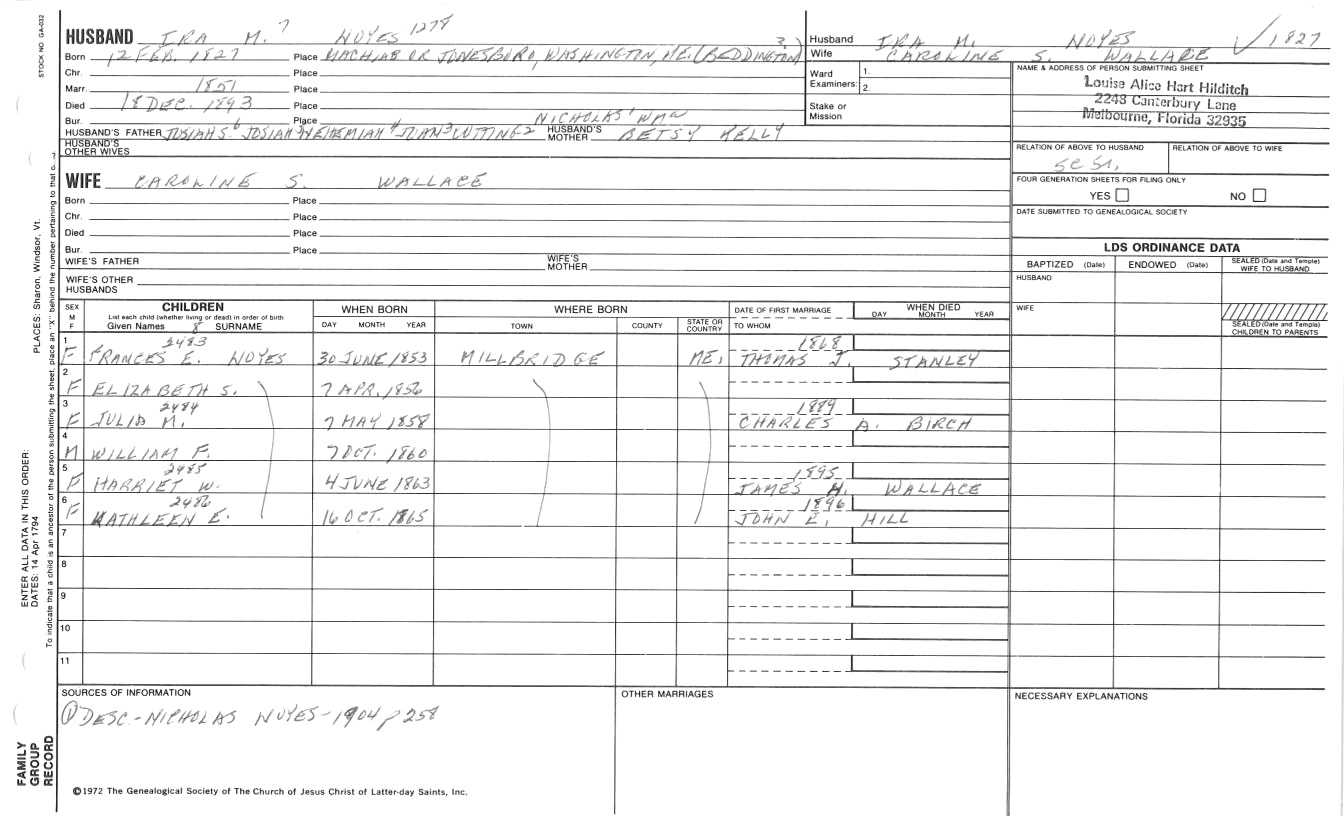 STOCK NO GA-032
HUSBAND IRA M. 7 NOYES 1278
Born 12 FEB. 1827 Place MACHIAS OR JONESBORO, WASHINGTON, ME. (BEDDINGTON ?)
Chr. Place
Marr. 1851 Place
Died 18 DEC. 1893 Place
Bur. Place
HUSBAND'S FATHER JOSIAH S. 6 JOSIAH 5 NEHEMIAH 4 JOHN 3 CUTTING 2 NICHOLAS 1 WM HUSBAND'S MOTHER BETSY KELLY
HUSBAND'S OTHER WIVES
WIFE CAROLINE S. WALLACE
Born Place
Chr. Place
Died Place
Bur. Place
WIFE'S FATHER WIFE'S MOTHER
WIFE'S OTHER HUSBANDS
Husband IRA M. NOYES 1827
Wife CAROLINE S. WALLACE
Ward Examiners: 1. 2.
Stake or Mission
NAME & ADDRESS OF PERSON SUBMITTING SHEET
Louise Alice Hart Hilditch
2248 Canterbury Lane
Melbourne, Florida 32935
RELATION OF ABOVE TO HUSBAND RELATION OF ABOVE TO WIFE
FOUR GENERATION SHEETS FOR FILING ONLY
YES NO
DATE SUBMITTED TO GENEALOGICAL SOCIETY
LDS ORDINANCE DATA
BAPTIZED (Date) ENDOWED (Date) SEALED (Date and Temple) WIFE TO HUSBAND
HUSBAND
WIFE
SEALED (Date and Temple) CHILDREN TO PARENTS
SEX M F
CHILDREN
List each child (whether living or dead) in order of birth
Given Names 8 SURNAME
WHEN BORN
DAY MONTH YEAR
WHERE BORN
TOWN COUNTY STATE OR COUNTRY
DATE OF FIRST MARRIAGE
TO WHOM
WHEN DIED
DAY MONTH YEAR
1 2483 1868
F FRANCES E. NOYES 30 JUNE 1853 MILLBRIDGE ME, THOMAS J. STANLEY
2
F ELIZABETH S. 7 APR. 1856
3 2484 1889
F JULIA M. 7 MAY 1858 CHARLES A. BIRCH
4
M WILLIAM F. 7 OCT. 1860
5 2485 1895
F HARRIET W. 4 JUNE 1863 JAMES H. WALLACE
6 2486 1896
F KATHLEEN E. 16 OCT. 1865 JOHN E, HILL
7
8
9
10
11
SOURCES OF INFORMATION OTHER MARRIAGES NECESSARY EXPLANATIONS
① DESC.-NICHOLAS NOYES-1904 p 258
©1972 The Genealogical Society of The Church of Jesus Christ of Latter-day Saints, Inc.
FAMILY GROUP RECORD
ENTER ALL DATA IN THIS ORDER:
DATES: 14 Apr 1794 PLACES: Sharon, Windsor, Vt.
To indicate that a child is an ancestor of the person submitting the sheet, place an "X" behind the number pertaining to that